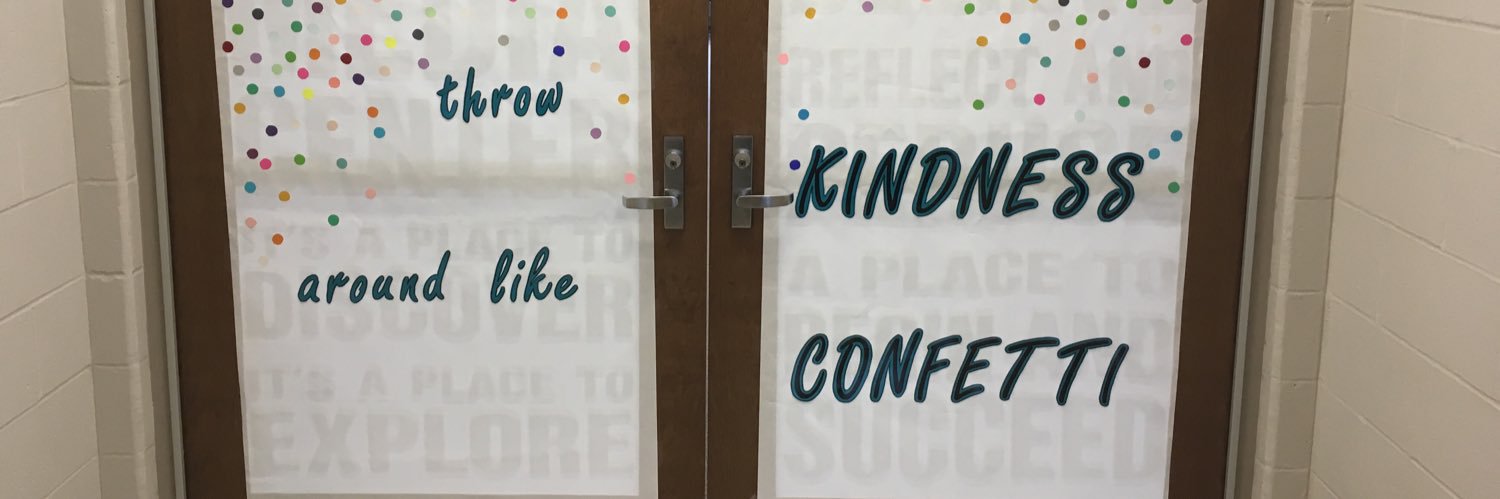 throw
KINDNESS
around like
CONFETTI
ENTER
IT'S A PLACE TO
DISCOVER
IT'S A PLACE TO
EXPLORE
REFLECT AND
A PLACE TO
BEGIN AND
SUCCEED